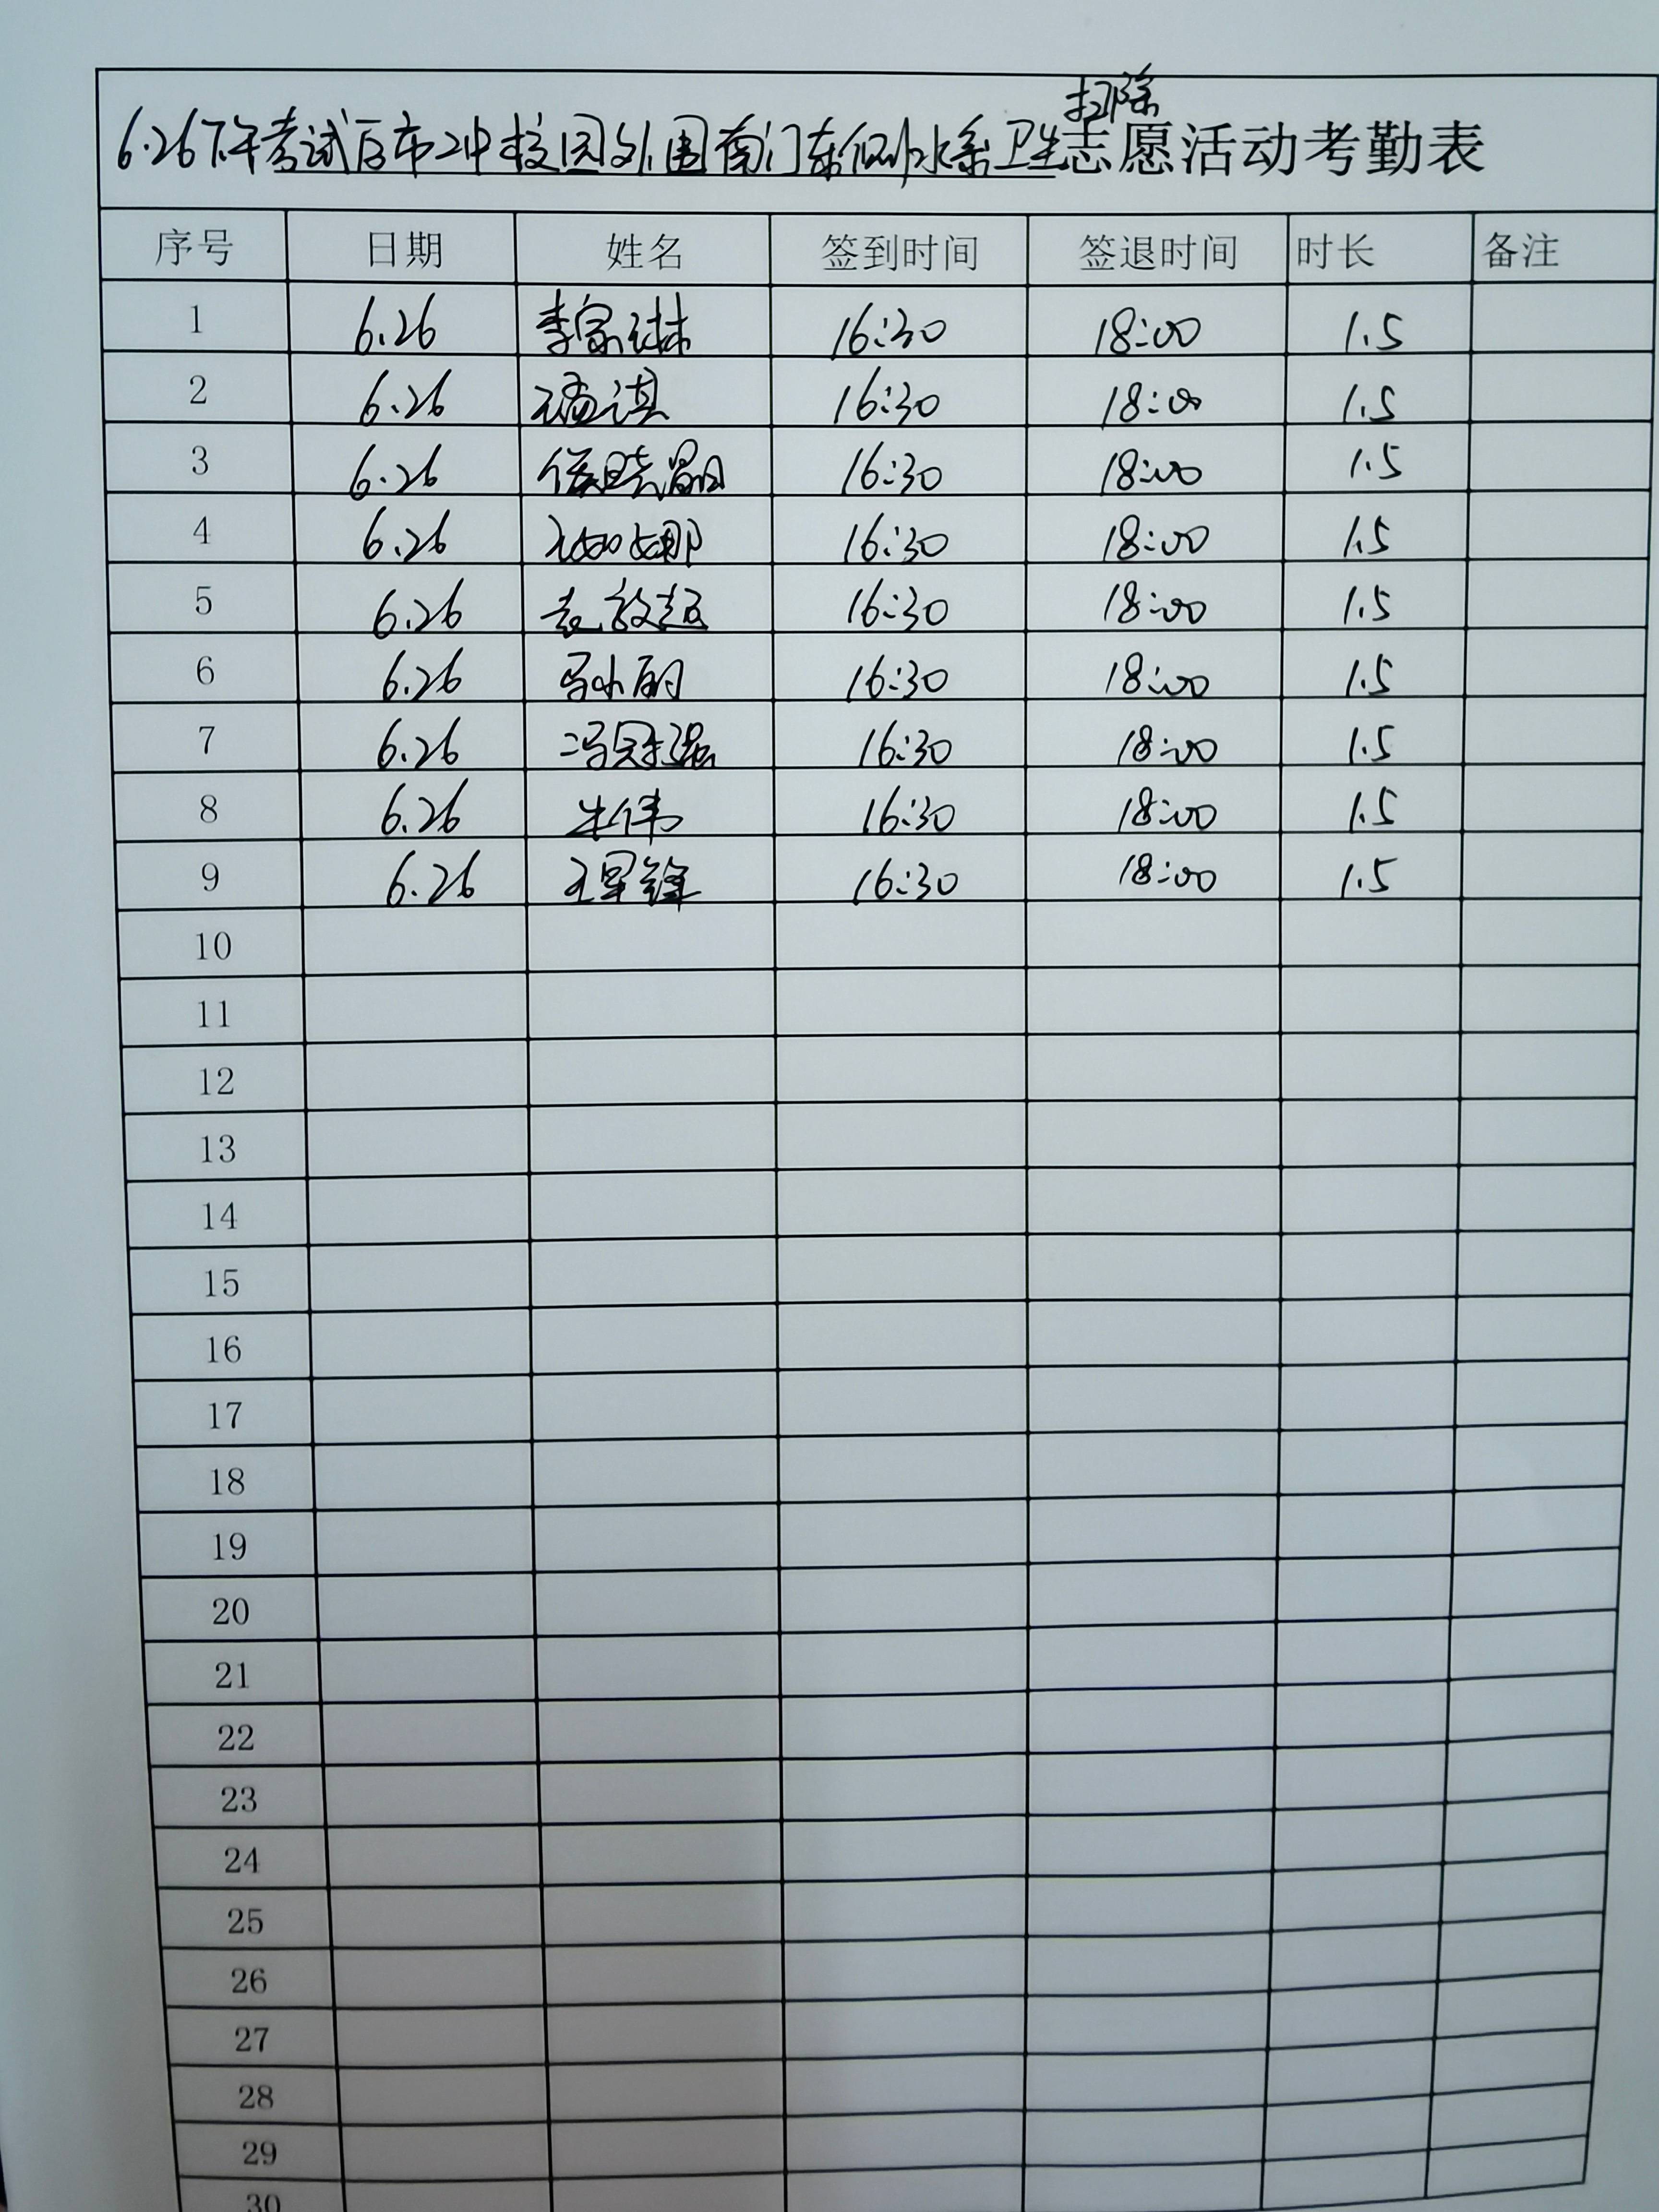 扫除
6.26下午考试后市二中校园外围南门东侧水系卫生志愿活动考勤表
序号 日期 姓名 签到时间 签退时间 时长 备注
1 6.26 李家琳 16:30 18:00 1.5
2 6.26 16:30 18:00 1.5
3 6.26 16:30 18:00 1.5
4 6.26 16:30 18:00 1.5
5 6.26 16:30 18:00 1.5
6 6.26 马小丽 16:30 18:00 1.5
7 6.26 冯冠强 16:30 18:00 1.5
8 6.26 朱伟 16:30 18:00 1.5
9 6.26 王军锋 16:30 18:00 1.5
10
11
12
13
14
15
16
17
18
19
20
21
22
23
24
25
26
27
28
29
30